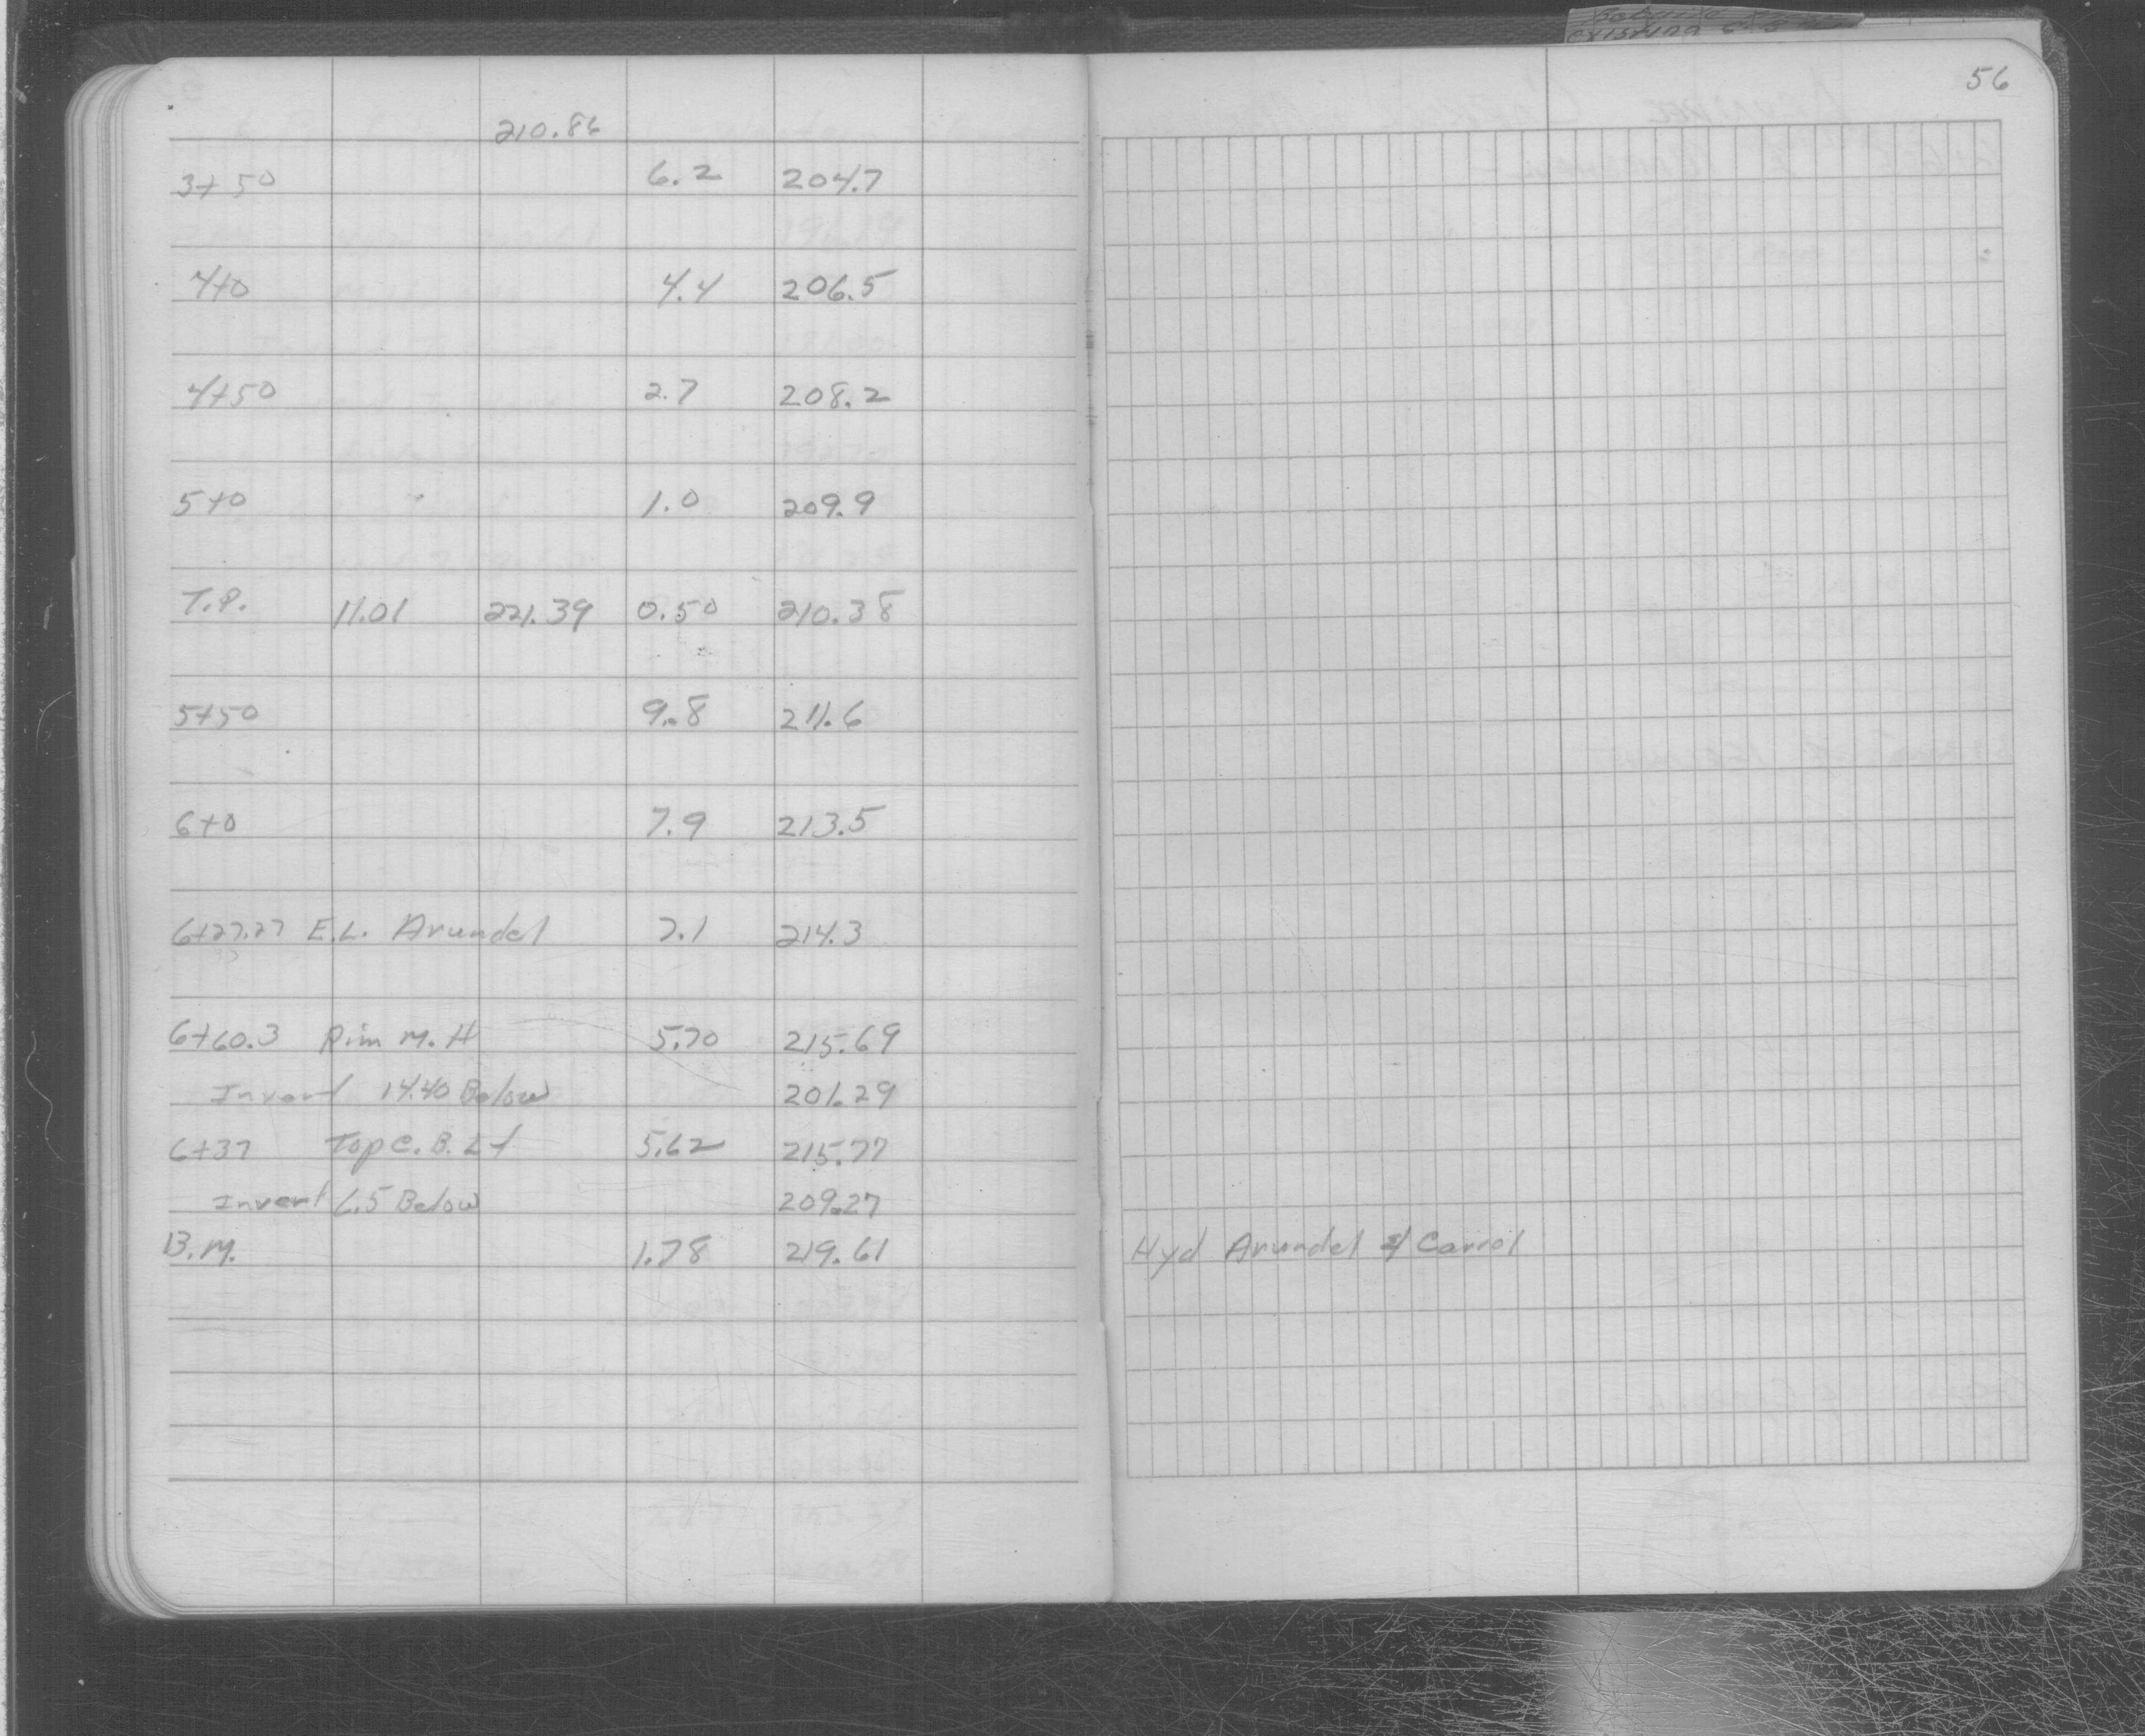 existing
56
210.86
3+50 6.2 204.7
4+0 4.4 206.5
4+50 2.7 208.2
5+0 1.0 209.9
T.P. 11.01 221.39 0.50 210.38
5+50 9.8 211.6
6+0 7.9 213.5
6+27.27 E.L. Arundel 7.1 214.3
6+60.3 Rim M.H 5.70 215.69
Invert 14.40 Below 201.29
6+37 Top C.B. Lt 5.62 215.77
Invert 6.5 Below 209.27
B.M. 1.78 219.61 Hyd Arundel & Carrol